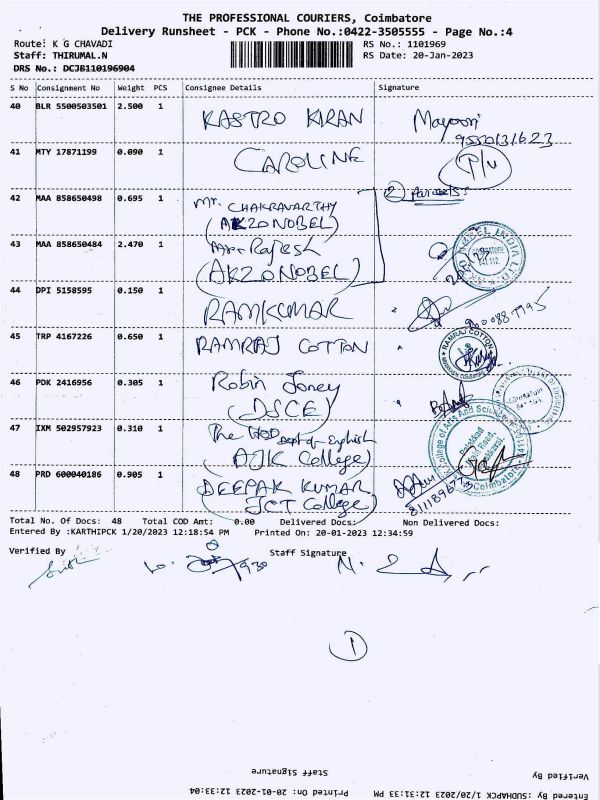 THE PROFESSIONAL COURIERS, Coimbatore
Delivery Runsheet - PCK - Phone No.:0422-3505555 - Page No.:4
Route: K G CHAVADI
RS No.: 1101969
Staff: THIRUMAL.N
RS Date: 20-Jan-2023
DRS No.: DCJB110196904
S No Consignment No Weight PCS Consignee Details Signature
40 BLR 5500503501 2.500 1 KASTRO KIRAN
9550131623
41 MTY 17871199 0.090 1 CAROLINE P/U
42 MAA 858650498 0.695 1 Mr. CHAKRAVARTHY
(AKZONOBEL)
43 MAA 858650484 2.470 1 Mr. Rajesh
(AKZONOBEL)
44 DPI 5158595 0.150 1 RAMKUMAR
45 TRP 4167226 0.650 1 RAMRAJ COTTON
RAMRAJ COTTON
46 PDK 2416956 0.305 1 Robin Joney
(DSCE)
47 IXM 502957923 0.310 1 The HOD Dept of English
(AJK College)
College of Arts And Science
Coimbatore
48 PRD 600040186 0.905 1 DEEPAK KUMAR
(JCT College)
Total No. Of Docs: 48 Total COD Amt: 0.00 Delivered Docs: Non Delivered Docs:
Entered By :KARTHIPCK 1/20/2023 12:18:54 PM Printed On: 20-01-2023 12:34:59
Verified By Staff Signature
1
Staff Signature
Verified By
Entered By :SUDHAPCK 1/20/2023 12:31:33 PM Printed On: 20-01-2023 12:33:04